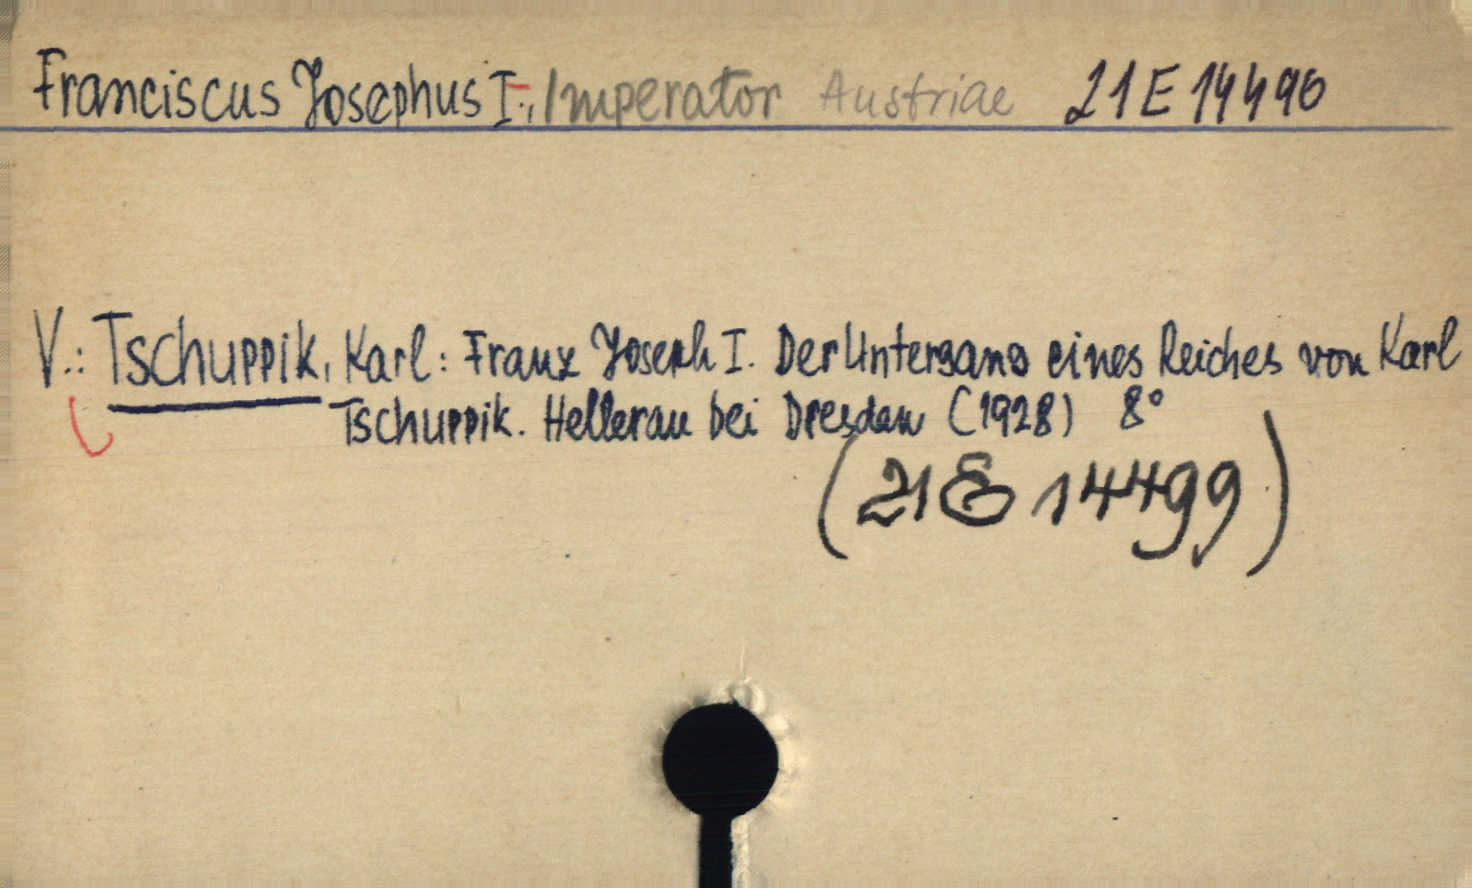 Franciscus Josephus I., Imperator Austriae 21 E 14490
V.: Tschuppik, Karl: Franz Joseph I. Der Untergang eines Reiches von Karl
Tschuppik. Hellerau bei Dresden (1928) 8°
(21 E 14499)